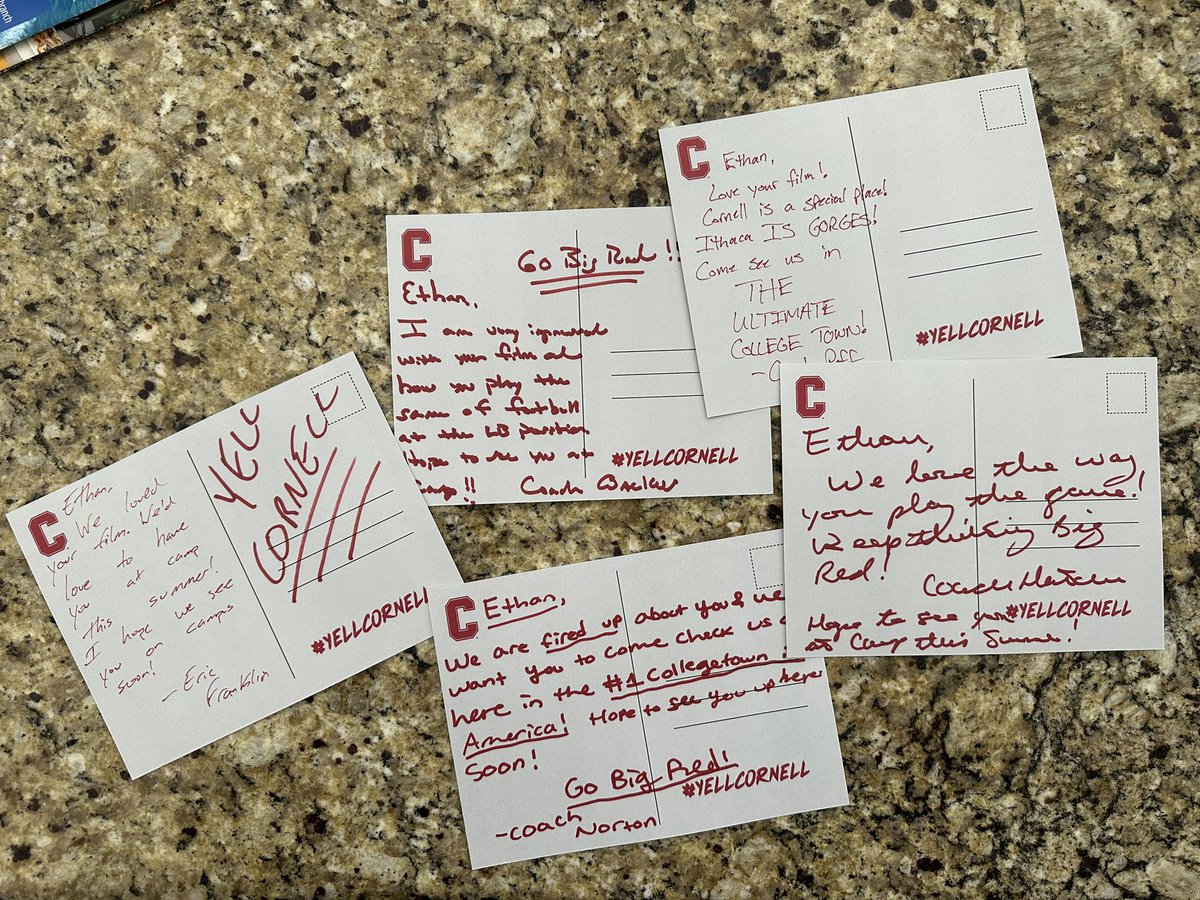 C
Ethan,
Love your film!
Cornell is a special place!
Ithaca IS GORGES!
Come see us in
THE
ULTIMATE
COLLEGE TOWN!
#YELLCORNELL
C
Go Big Red!!
Ethan,
I am very impressed
with your film and
how you play the
game of football
at the LB position
Hope to see you at
Camp!!
Coach
#YELLCORNELL
C
Ethan,
We love the way
you play the game!
Keep thinking Big
Red!
Coach
Hope to see you
at Camp this Summer!
#YELLCORNELL
C
Ethan,
We loved
your film. We'd
love to have
you at camp
this summer!
I hope we see
you on campus
soon!
- Eric
Franklin
YELL
CORNELL
#YELLCORNELL
C
Ethan,
We are fired up about you & we
want you to come check us
here in the #1 Collegetown
America! Hope to see you up here
soon!
Go Big Red!
-Coach
Norton
#YELLCORNELL